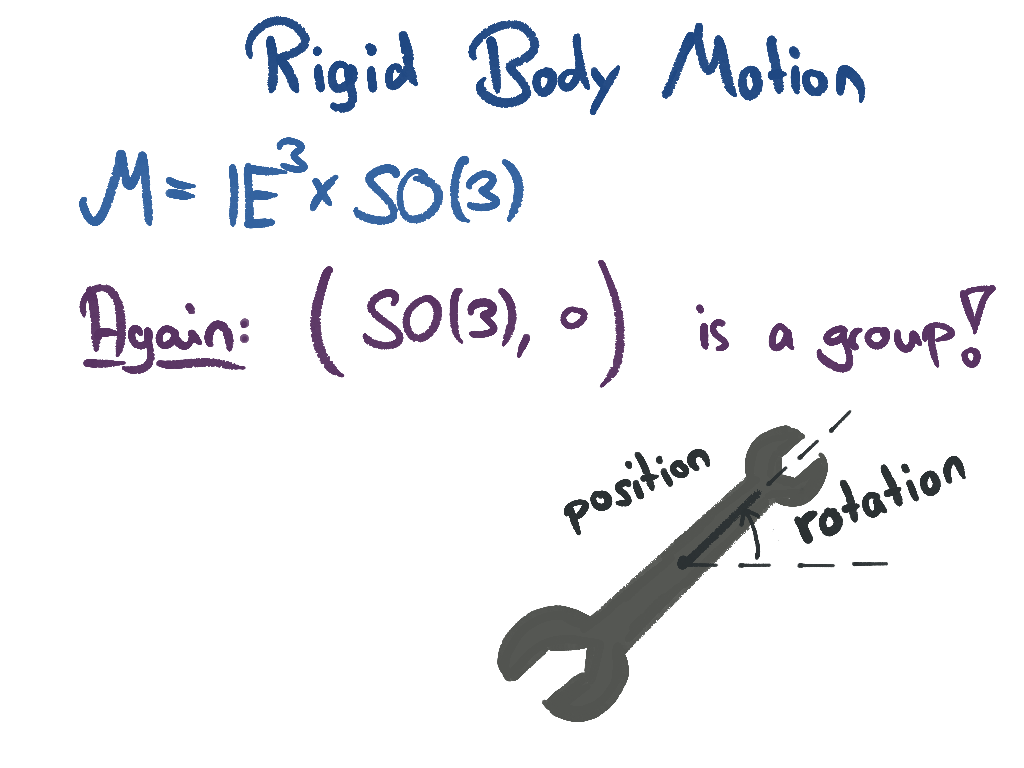 Rigid Body Motion
M = 𝔼³ × SO(3)
Again: (SO(3), ∘) is a group!
position
rotation